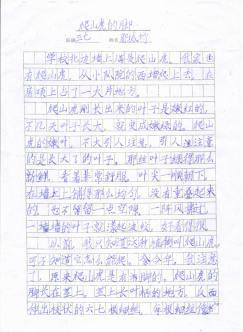 爬山虎的脚
学校北边墙上满是爬山虎。我家也
有爬山虎，从小院的西墙爬上去，在
房顶上占了一大片地方。
爬山虎刚长出来的叶子是嫩红的，
不几天叶子长大，就变成嫩绿的。爬山
虎的嫩叶，不大引人注意，引人注意
的是长大了的叶子。那些叶子绿得那么
新鲜，看着非常舒服，叶尖一顺朝下，
在墙上铺得那么均匀，没有重叠起来
的，也不留一点空隙。一阵风拂过，
一墙的叶子就漾起波纹，好看得很。
以前，我只知道这种植物叫爬山虎，
可不知道它怎么能爬。今年，我注意
了，原来爬山虎是有脚的。爬山虎的
脚长在茎上。茎上长叶柄的地方，反面
伸出枝状的六七根细丝，